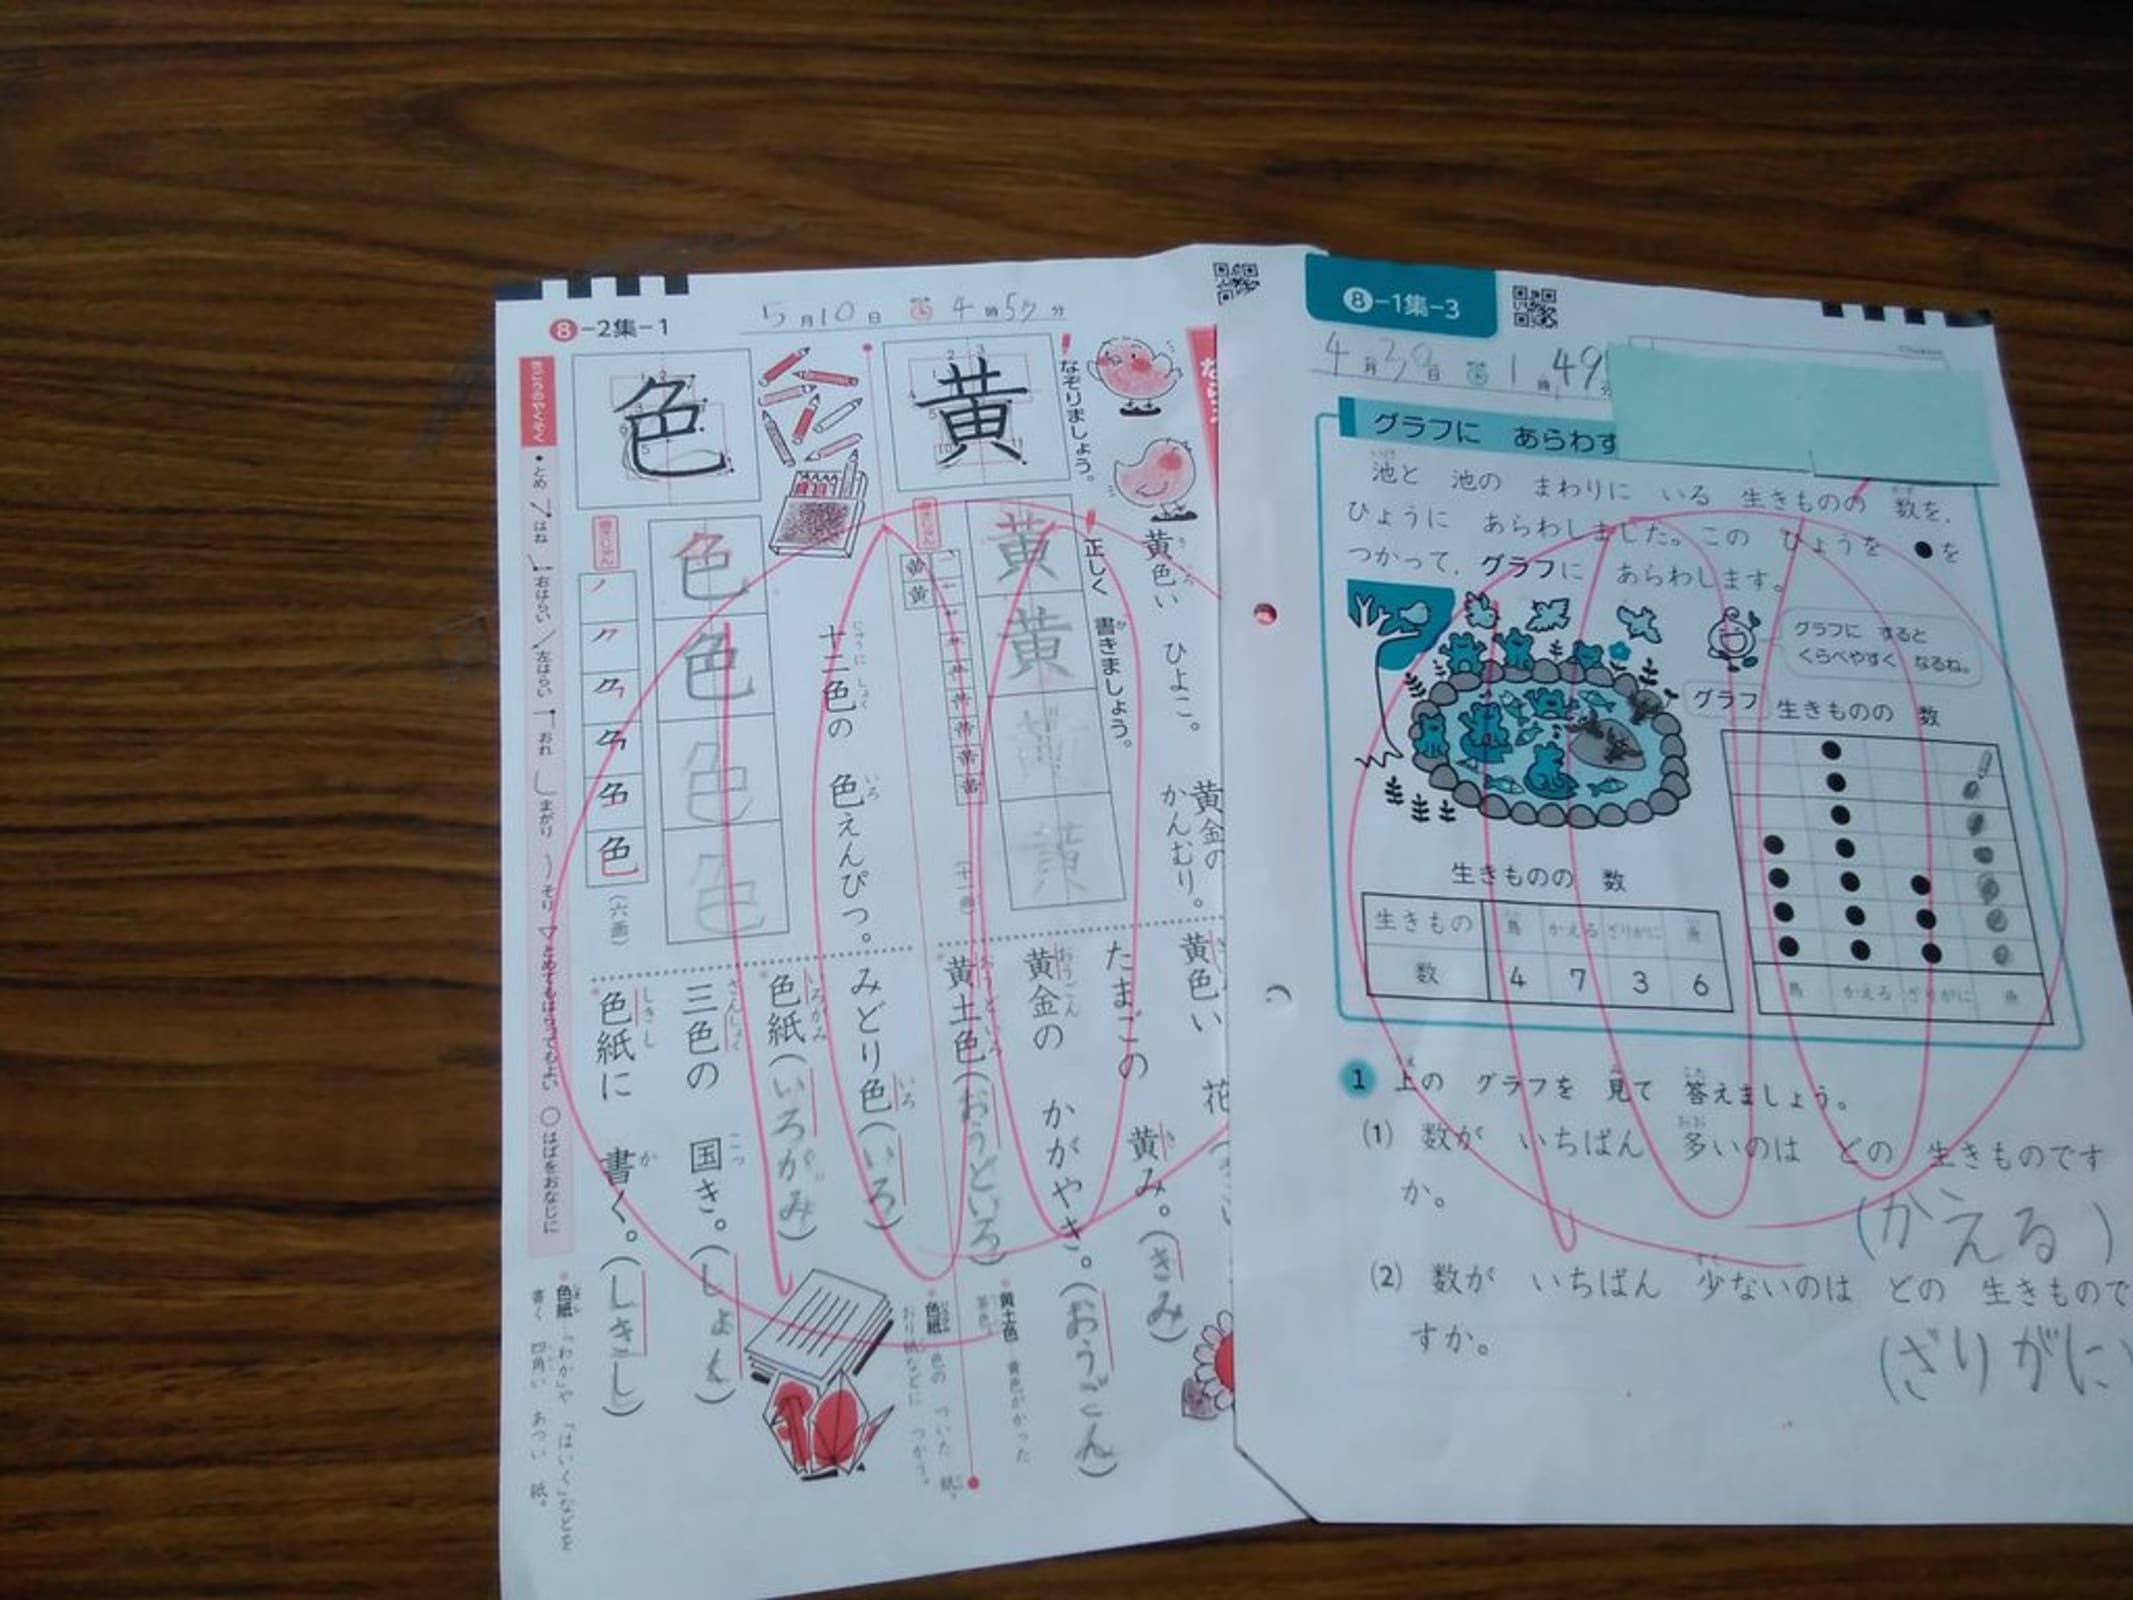 8-2集-1
5月10日 4時57分
なぞりましょう。
黄
色
正しく 書きましょう。
黄
黄
黄
黄
色
色
色
色
色
(六画)
黄色い ひよこ。
黄金の
かんむり。
十二色の 色えんぴつ。
黄色い 花
たまごの 黄み。(きみ)
黄金の かがやき。(おうごん)
黄土色(おうどいろ)
みどり色(いろ)
色紙(いろがみ)
三色の 国き。(しょく)
色紙に 書く。(しきし)
・とめ はね 右はらい 左はらい おれ まがり そり とめてもはらってもよい ○はばをおなじに
黄土色 黄色がかった
色紙 色の ついた 紙。
おり紙などに つかう。
色紙「わか」や「はいく」などを
書く 四角い あつい 紙。
8-1集-3
4月30日 1時49分
グラフに あらわす
池と 池の まわりに いる 生きものの 数を、
ひょうに あらわしました。この ひょうを ●を
つかって、グラフに あらわします。
グラフに すると
くらべやすく なるね。
グラフ 生きものの 数
鳥 かえる ざりがに 魚
生きものの 数
生きもの 鳥 かえる ざりがに 魚
数 4 7 3 6
1 上の グラフを 見て 答えましょう。
(1) 数が いちばん 多いのは どの 生きものです
か。
(かえる)
(2) 数が いちばん 少ないのは どの 生きもので
すか。
(ざりがに)